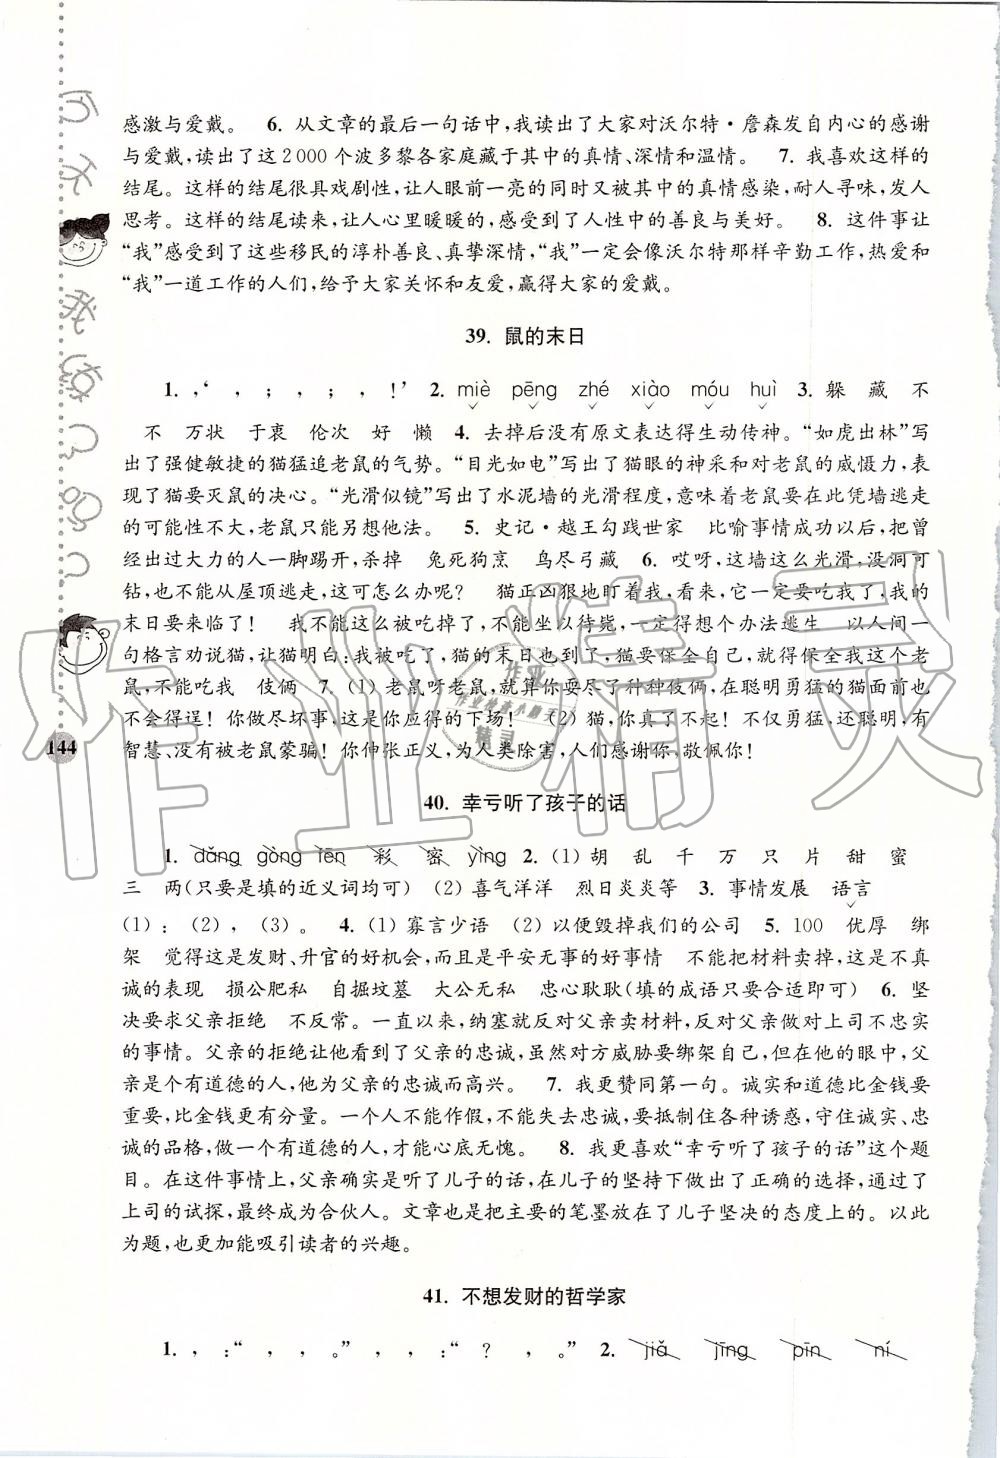 感激与爱戴。 6. 从文章的最后一句话中,我读出了大家对沃尔特·詹森发自内心的感谢
与爱戴,读出了这2000个波多黎各家庭藏于其中的真情、深情和温情。 7. 我喜欢这样的
结尾。这样的结尾很具戏剧性,让人眼前一亮的同时又被其中的真情感染,耐人寻味,发人
思考。这样的结尾读来,让人心里暖暖的,感受到了人性中的善良与美好。 8. 这件事让
“我”感受到了这些移民的淳朴善良、真挚深情,“我”一定会像沃尔特那样辛勤工作,热爱和
“我”一道工作的人们,给予大家关怀和友爱,赢得大家的爱戴。
39. 鼠的末日
1. ,‘ , ; , ; , !’ 2. miè pēng zhé xiào móu huì 3. 躲 藏 不
不 万状 于衷 伦次 好 懒 4. 去掉后没有原文表达得生动传神。“如虎出林”写
出了强健敏捷的猫猛追老鼠的气势。“目光如电”写出了猫眼的神采和对老鼠的威慑力,表
现了猫要灭鼠的决心。“光滑似镜”写出了水泥墙的光滑程度,意味着老鼠要在此凭墙逃走
的可能性不大,老鼠只能另想他法。 5. 史记·越王勾践世家 比喻事情成功以后,把曾
经出过大力的人一脚踢开,杀掉 兔死狗烹 鸟尽弓藏 6. 哎呀,这墙这么光滑,没洞可
钻,也不能从屋顶逃走,这可怎么办呢? 猫正凶狠地盯着我,看来,它一定要吃了我,我的
末日要来临了! 我不能这么被吃掉了,不能坐以待毙,一定得想个办法逃生 以人间一
句格言劝说猫,让猫明白:我被吃了,猫的末日也到了,猫要保全自己,就得保全我这个老
鼠,不能吃我 伎俩 7. (1) 老鼠呀老鼠,就算你要尽了种种伎俩,在聪明勇猛的猫面前也
不会得逞! 你做尽坏事,这是你应得的下场! (2) 猫,你真了不起! 不仅勇猛,还聪明,有
智慧、没有被老鼠蒙骗! 你伸张正义,为人类除害,人们感谢你、敬佩你!
144
40. 幸亏听了孩子的话
1. dǎng gòng fēn 彩 密 yìng 2. (1) 胡 乱 千 万 只 片 甜 蜜
三 两(只要是填的近义词均可) (2) 喜气洋洋 烈日炎炎等 3. 事情发展 语言
(1) : (2) , (3) 。 4. (1) 寡言少语 (2) 以便毁掉我们的公司 5. 100 优厚 绑
架 觉得这是发财、升官的好机会,而且是平安无事的好事情 不能把材料卖掉,这是不真
诚的表现 损公肥私 自掘坟墓 大公无私 忠心耿耿(填的成语只要合适即可) 6. 坚
决要求父亲拒绝 不反常。一直以来,纳塞就反对父亲卖材料,反对父亲做对上司不忠实
的事情。父亲的拒绝让他看到了父亲的忠诚,虽然对方威胁要绑架自己,但在他的眼中,父
亲是个有道德的人,他为父亲的忠诚而高兴。 7. 我更赞同第一句。诚实和道德比金钱要
重要,比金钱更有分量。一个人不能作假,不能失去忠诚,要抵制住各种诱惑,守住诚实、忠
诚的品格,做一个有道德的人,才能心底无愧。 8. 我更喜欢“幸亏听了孩子的话”这个题
目。在这件事情上,父亲确实是听了儿子的话,在儿子的坚持下做出了正确的选择,通过了
上司的试探,最终成为合伙人。文章也是把主要的笔墨放在了儿子坚决的态度上的。以此
为题,也更加能吸引读者的兴趣。
41. 不想发财的哲学家
1. , :“ , , 。” , , :“ ? , 。” 2. jiǎ jīng pīn ní